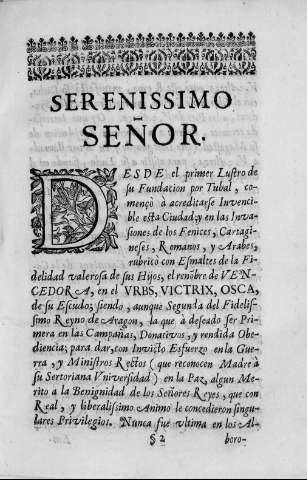 SERENISSIMO
SEÑOR.
DESDE el primer Lustro de
su Fundacion por Tubal, co-
mençò à acreditarse Invenci-
ble esta Ciudad; y en las Inva-
siones de los Fenices, Cartagi-
neses, Romanos, y Arabes,
rubricò con Esmaltes de la Fi-
delidad valerosa de sus Hijos, el renõbre de VEN-
CEDORA, en el VRBS, VICTRIX, OSCA,
de su Escudo; siendo, aunque Segunda del Fidelis-
simo Reyno de Aragon, la que à deseado ser Pri-
mera en las Campañas, Donativos, y rendida Obe-
diencia; para dar, con Invicto Esfuerzo en la Gue-
rra, y Ministros Rectos (que reconocen Madre à
su Sertoriana Vniversidad) en la Paz, algun Me-
rito a la Benignidad de los Señores Reyes, que con
Real, y liberalissimo Animo le concedieron singu-
lares Privilegios. Nunca fue vltima en los Al-
§ 2 boro-